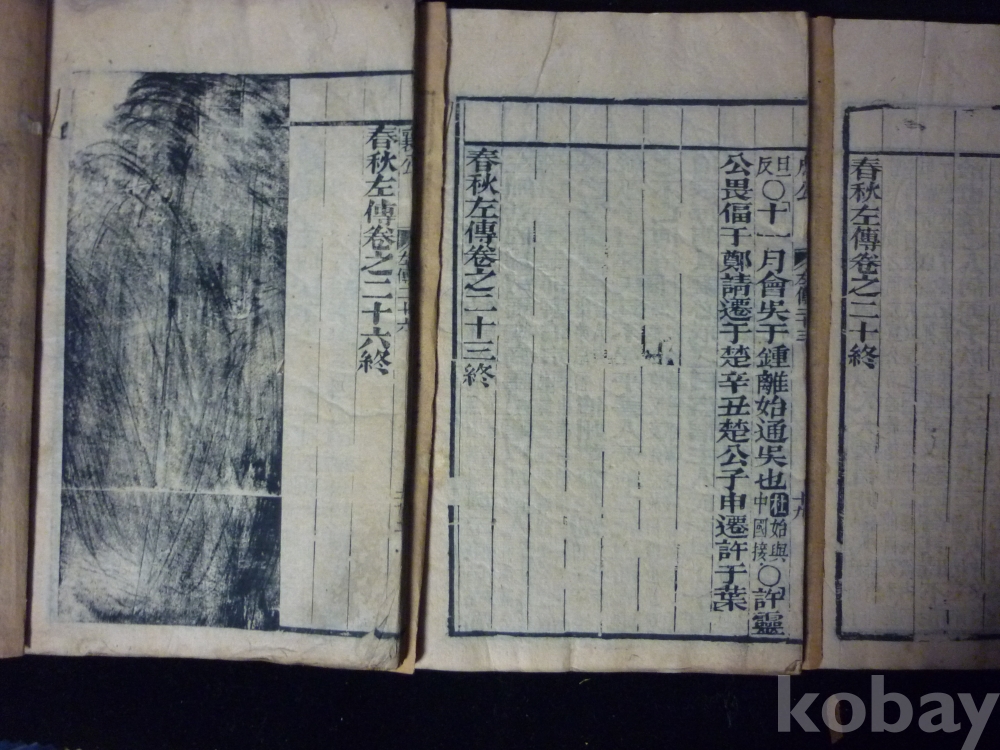 春秋左傳卷之二十終
旦反〇十一月會吳于鍾離始通吳也杜始與中國接〇許靈
公畏偪于鄭請遷于楚辛丑楚公子申遷許于葉
春秋左傳卷之二十三終
襄公 左傳二十六
春秋左傳卷之二十六終
kobay